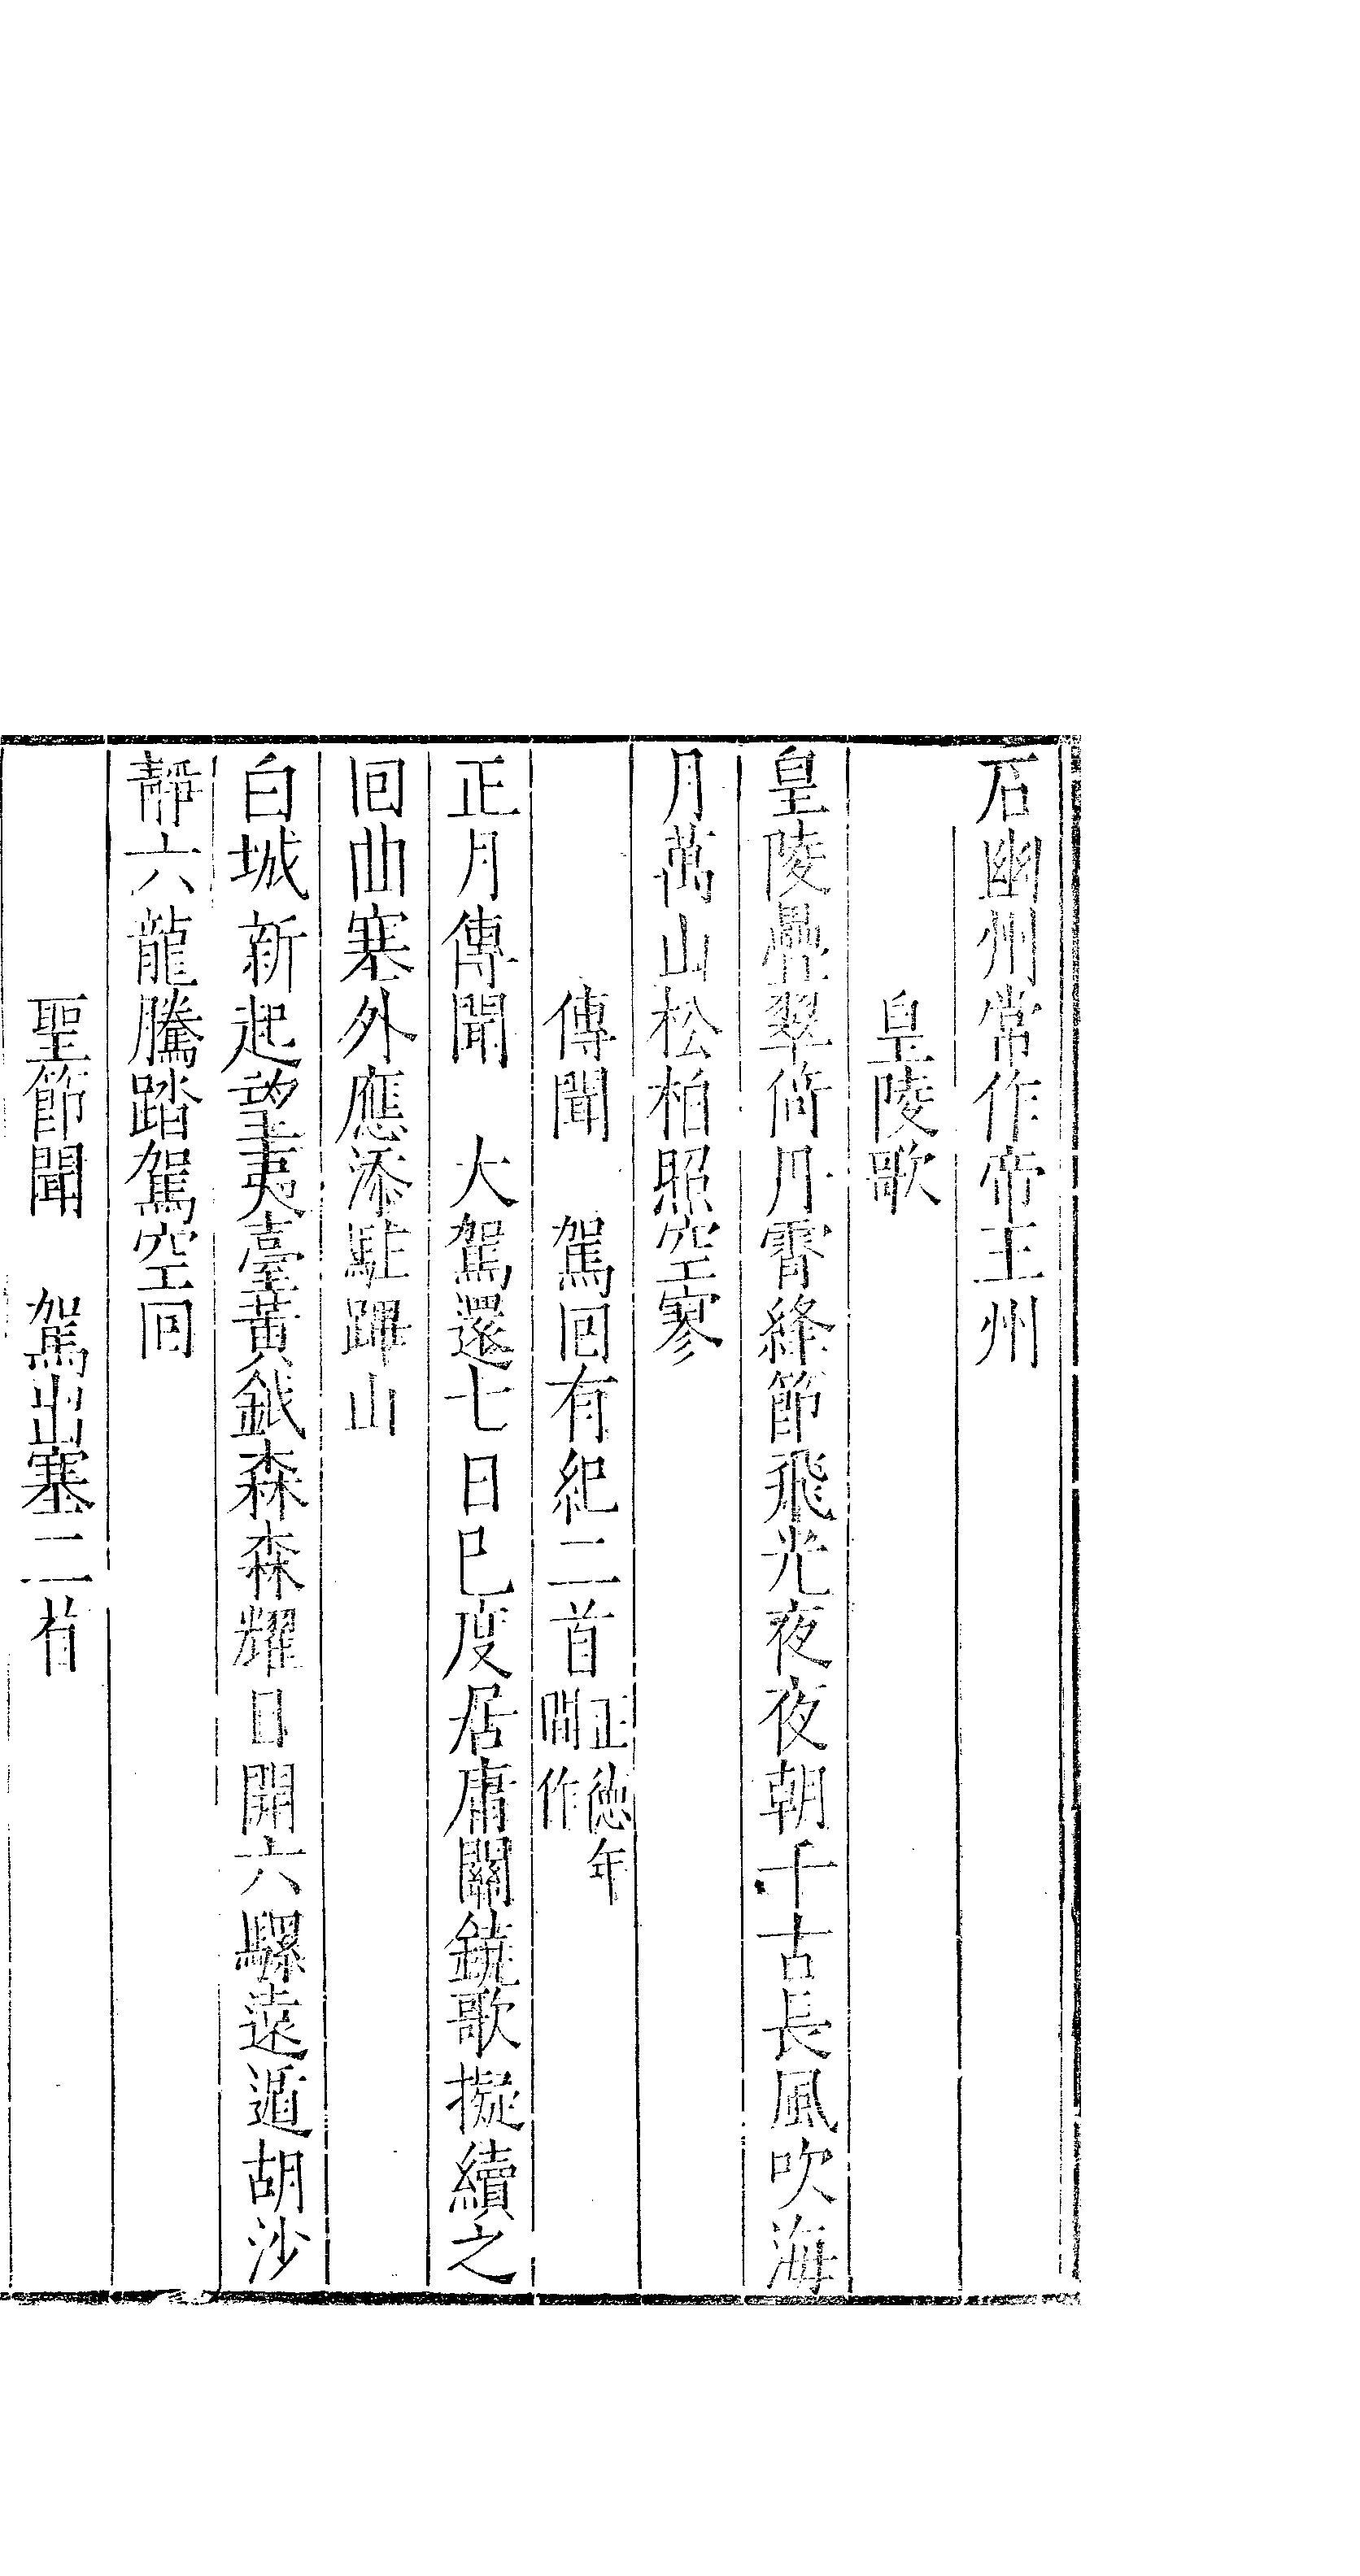 石幽州常作帝王州
皇陵歌
皇陵疊翠倚丹霄絳節飛光夜夜朝千古長風吹海
月萬山松柏照空寥
傳聞　駕回有紀二首正德年間作
正月傳聞　大駕還七日巳度居庸關鐃歌擬續之
回曲塞外應添駐蹕山
白城新起望夷臺黃鉞森森耀日開六騾遠遁胡沙
靜六龍騰踏駕空回
聖節聞　駕出塞二首